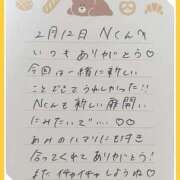 2月12日 Nくんへ
いつもありがとう♡
今回は一緒に新しい
ことできてうれしかった!!
Nくんも新しい扉開い
たみたいで‥‥♡♡
あみのハマりにもすき
合ってくれてありがとう!
また イチャイチャしようね♡